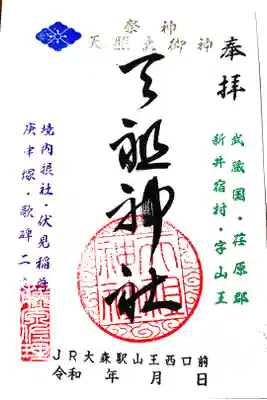 奉拝
武蔵国・荏原郡
新井宿村・字山王
祭神
天照大御神
天祖神社
境内摂社・伏見稲荷
庚申塚・歌碑二
JR大森駅山王西口前
令和 年 月 日